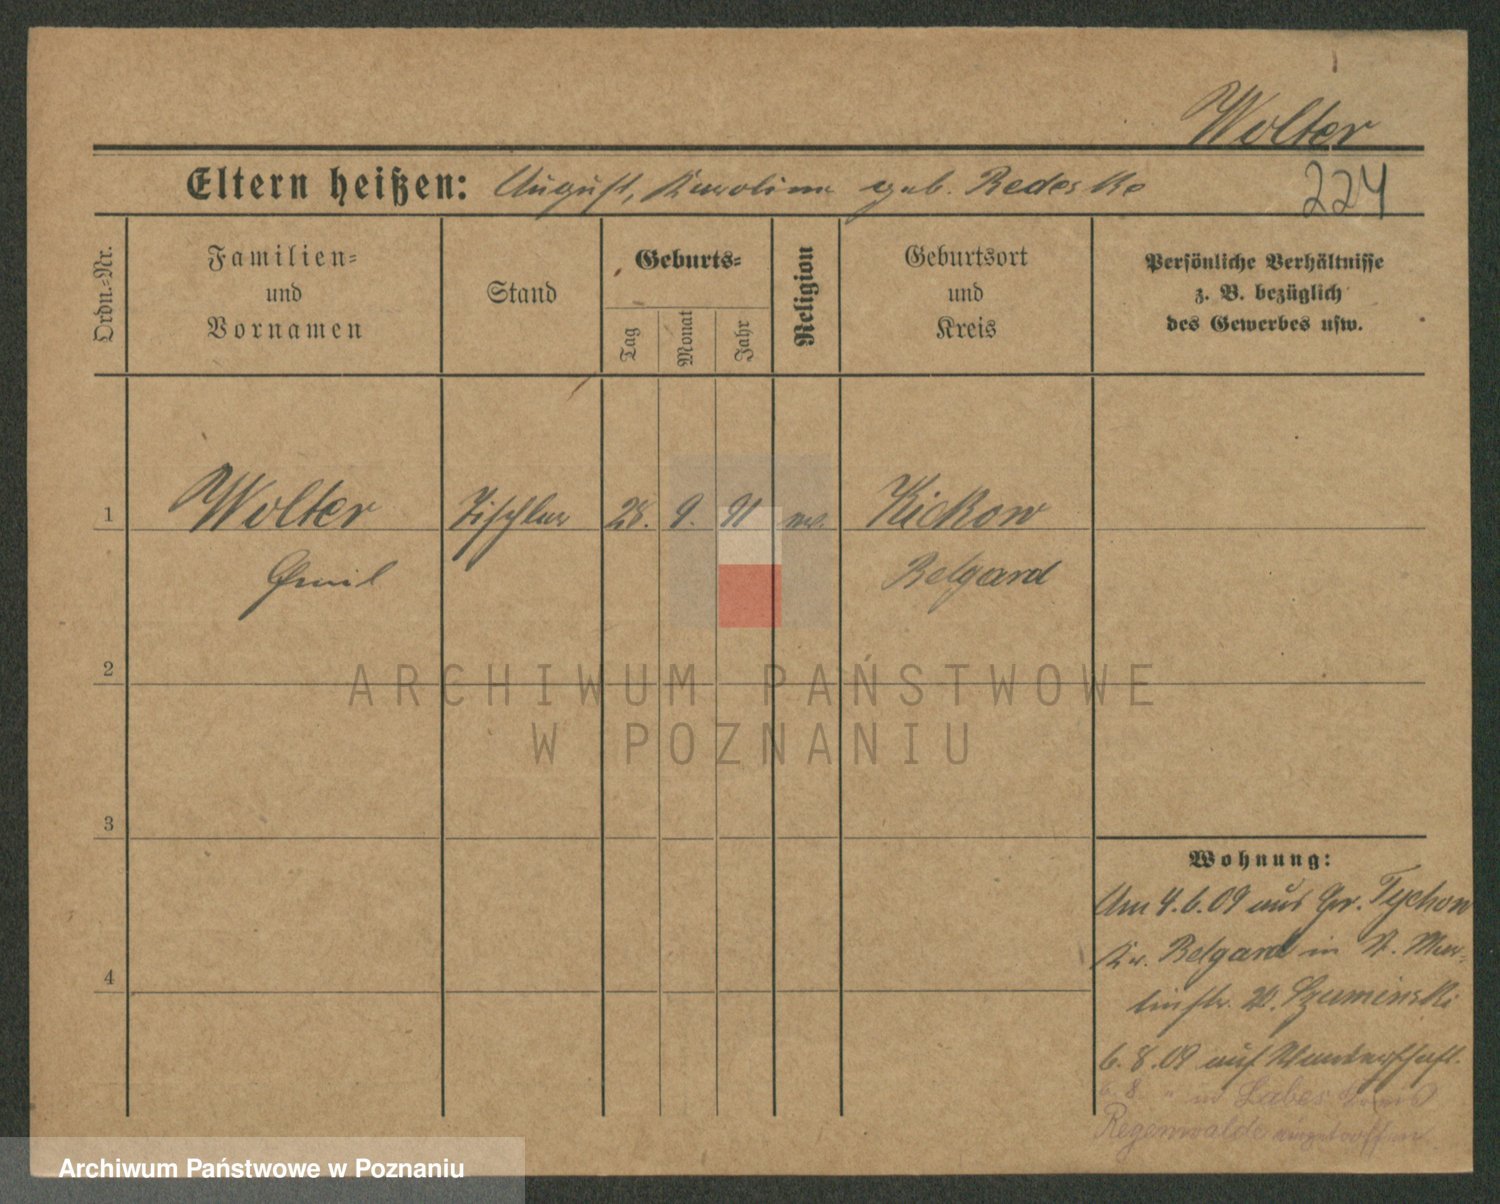 Wolter
Eltern heißen: August, Karoline geb. Redeske
224
Ordn.=Nr.
Familien=
und
Vornamen
Stand
Geburts=
Tag
Monat
Jahr
Religion
Geburtsort
und
Kreis
Persönliche Verhältnisse
z. B. bezüglich
des Gewerbes usw.
1 Wolter Tischler 28. 9. 91 ev. Kickow
Emil Belgard
2
3
4
Wohnung:
Am 4.6.09 aus Gr. Tychow
Kr. Belgard in St. Mar=
tinstr. Szuminski
6.8.09 auf Wanderschaft.
6.8. " in Labes Kreis
Regenwalde eingetroffen.
ARCHIWUM PAŃSTWOWE
W POZNANIU
Archiwum Państwowe w Poznaniu